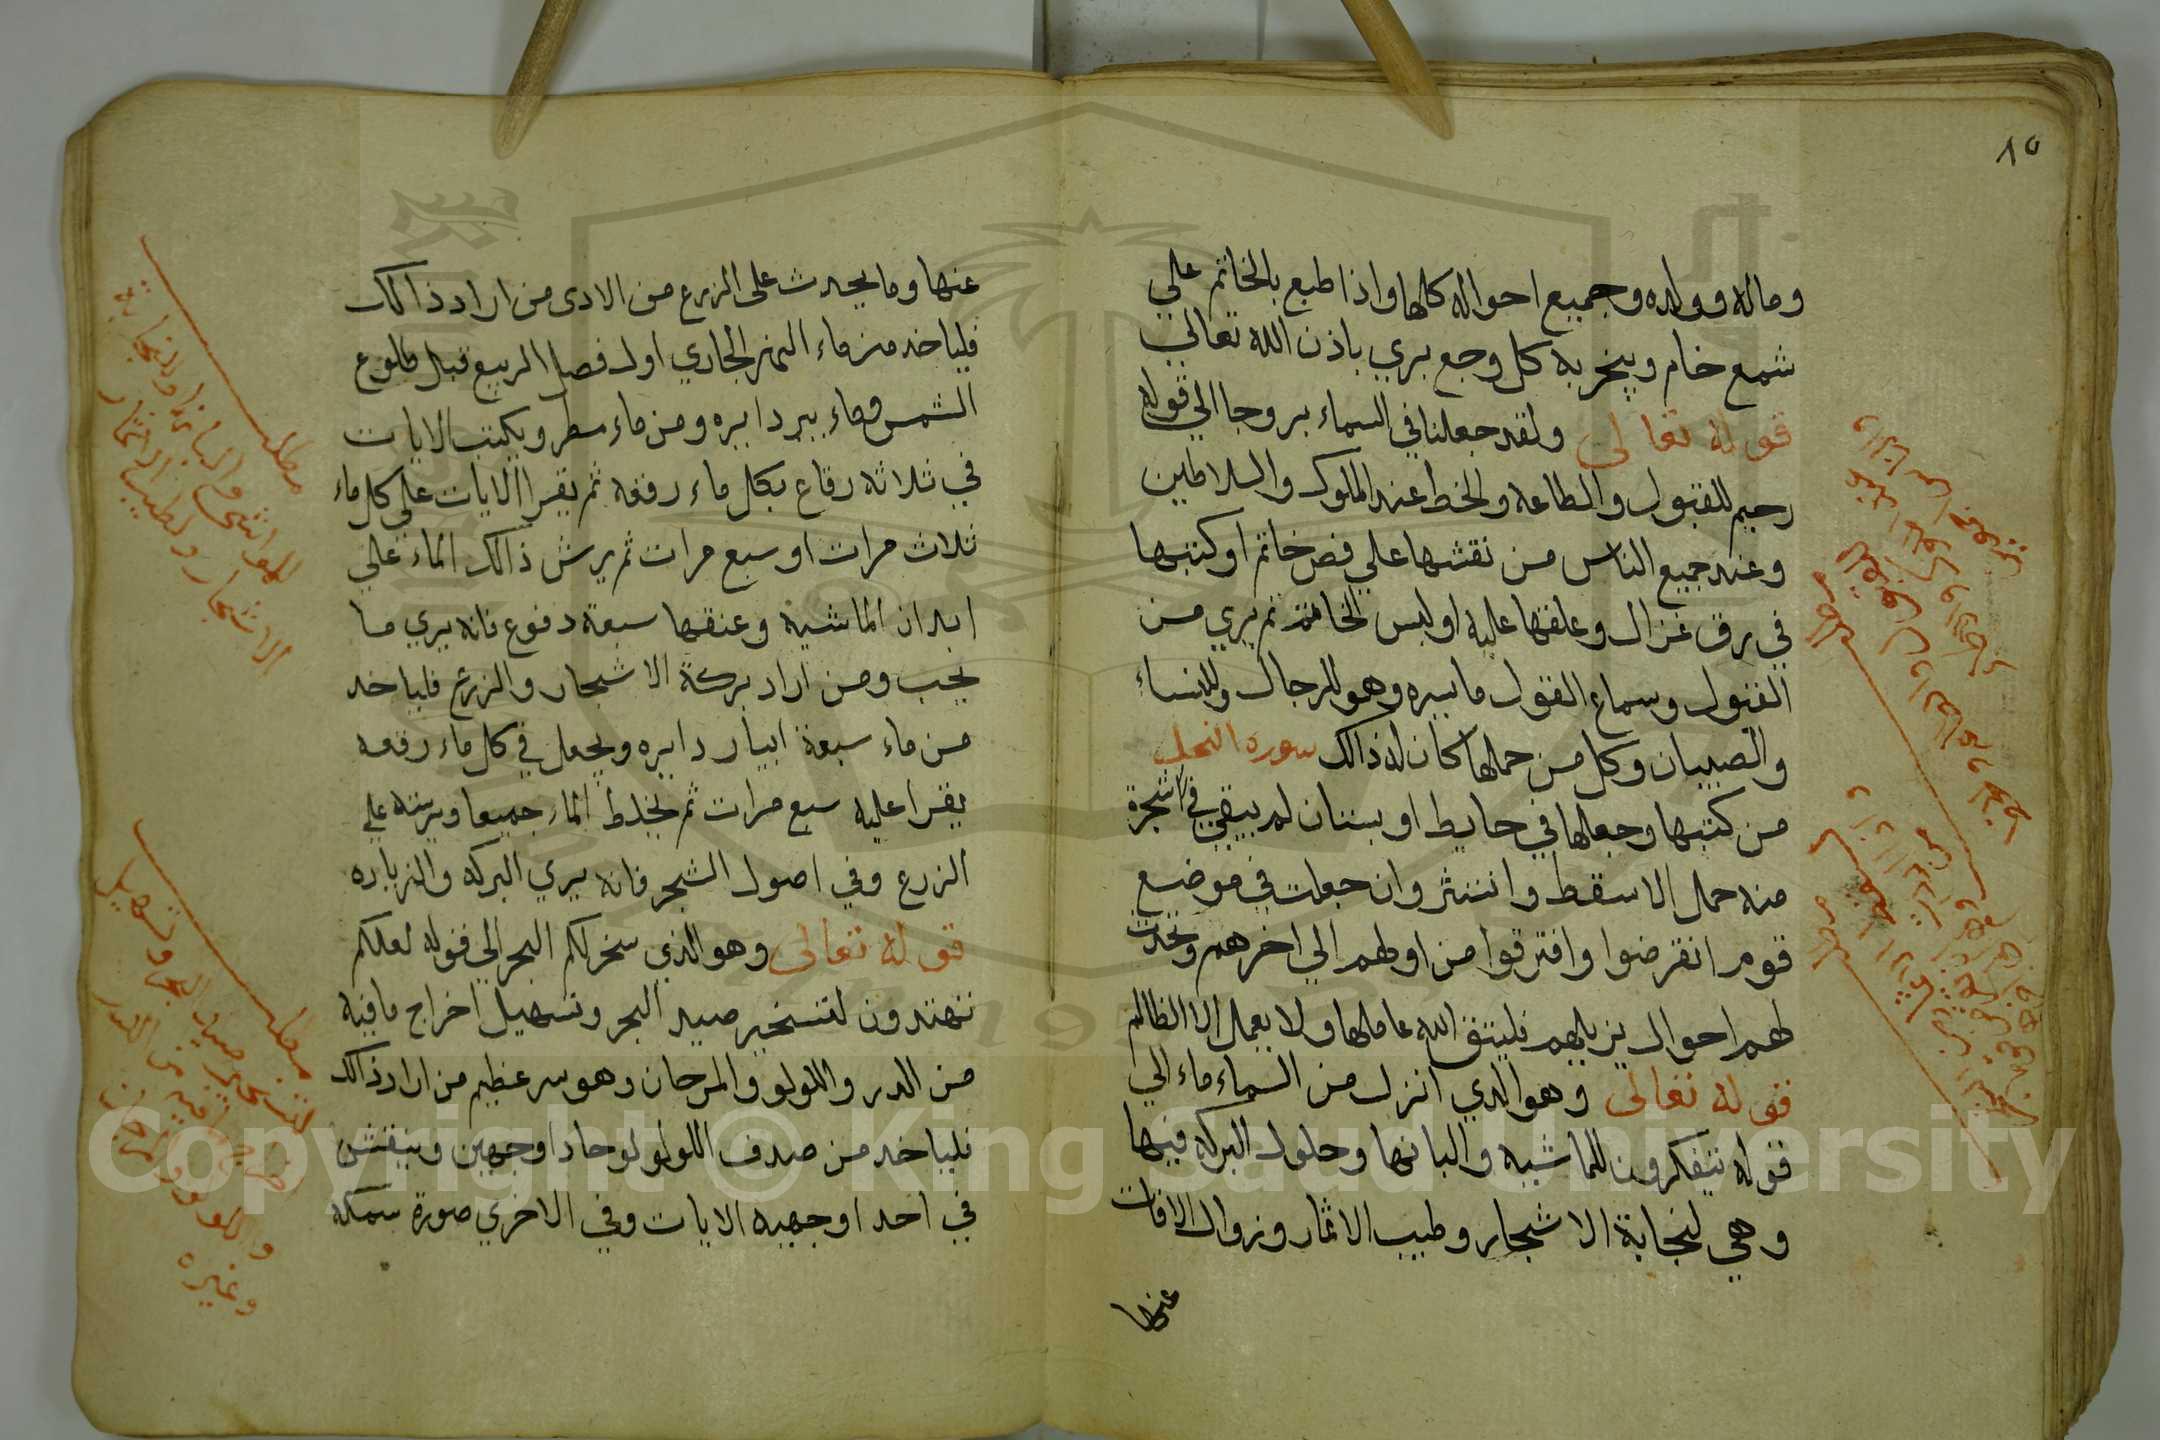 ٨٥
وماله وولده وجميع احواله كلها واذا طبع بالخاتم علي
شمع خام ويبخر به كل وجع بري باذن الله تعالي
قوله تعالى ولقد جعلنا في السماء بروجا الي قوله
رجيم للقبول والطاعه والخط عند الملوك والسلاطين
وعند جميع الناس من نقشها علي فص خاتم او كتبها
في برق غزال وعلقها عليه او لبس الخاتم ثم يري من
القبول وسماع القول ما يسره وهو للرجال وللنساء
والصبيان وكل من حملها كان له ذالك سورة النحل
من كتبها وجعلها في حايط او بستان لم يبقي فيه شجرة
منه حمل الا سقط وانتثر وان جعلت في موضع
قوم انقرضوا وافترقوا من اولهم الي اخرهم وتحدث
لهم احوال يزيلهم فليتق الله عاملها ولا يعمل الا لظالم
قوله تعالى وهو الذي انزل من السماء ماء الي
قوله يتفكرون للماشيه والبانها وحلول البركه فيها
وهي لنجابة الاشجار وطيب الاثمار وزوال الافات
عنها
عنها وما يحدث على الزرع من الادى من اراد ذالك
فلياخد من ماء النهر الجاري اول فصل الربيع قبل طلوع
الشمس وماء بير دايره ومن ماء مطر ويكتب الايات
في ثلاثه رقاع بكل ماء رقعه ثم يقرا الايات علي كل ماء
ثلاث مرات او سبع مرات ثم يرش ذالك الماء علي
ابدان الماشيه وعنقها سبعة دفوع فانه يري ما
يحب ومن اراد بركة الاشجار والزرع فلياخد
من ماء سبعة ابيار دايره ويجعل في كل ماء رقعه
يقرا عليه سبع مرات ثم يخلط الماء جميعا ويرشه علي
الزرع وفي اصول الشجر فانه يري البركه والزياده
قوله تعالى وهو الذي سخر لكم البحر الي قوله لعلكم
تهتدون لتسخير صيد البحر وتسهيل اخراج ما فيه
من الدر واللولو والمرجان وهو سر عظيم من اراد ذالك
فلياخد من صدف اللولو لوحا دا وجهين وينقش
في احد اوجهيه الايات وفي الاخري صورة سمكه
مطلب
للمواشي والبانها ولنجابة
الاشجار ولطيب الاثمار
مطلب
لتسخير صيد البحر وتسهيل
واللولو والمرجان
وغيره
Copyright © King Saud University